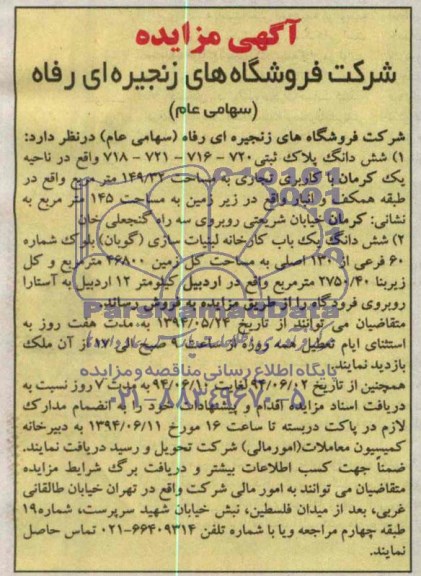 آگهی مزایده
شرکت فروشگاه های زنجیره ای رفاه
(سهامی عام)
شرکت فروشگاه های زنجیره ای رفاه (سهامی عام) درنظر دارد:
۱) شش دانگ پلاک ثبتی ۷۲۰ - ۷۱۶ - ۷۲۱ - ۷۱۸ واقع در ناحیه
یک کرمان با کاربری تجاری به مساحت ۱۴۹/۳۲ متر مربع واقع در
طبقه همکف و انبار واقع در زیر زمین به مساحت ۱۴۵ متر مربع به
نشانی: کرمان خیابان شریعتی روبروی سه راه گنجعلی خان
۲) شش دانگ یک باب کارخانه لبنیات سازی (گویان) پلاک شماره
۶۰ فرعی از ۱۳۰ اصلی به مساحت کل زمین ۴۶۸۰۰ مترمربع و کل
زیربنا ۲۷۵۰/۴۰ مترمربع واقع در اردبیل کیلومتر ۱۲ اردبیل به آستارا
روبروی فرودگاه را از طریق مزایده به فروش رساند.
متقاضیان می توانند از تاریخ ۱۳۹۴/۰۵/۲۴ به مدت هفت روز به
استثنای ایام تعطیل همه روزه از ساعت ۹ صبح الی ۱۷ از آن ملک
بازدید نمایند.
همچنین از تاریخ ۹۴/۰۶/۰۲ لغایت ۹۴/۰۶/۱۰ به مدت ۷ روز نسبت به
دریافت اسناد مزایده اقدام و پیشنهادات خود را به انضمام مدارک
لازم در پاکت دربسته تا ساعت ۱۶ مورخ ۱۳۹۴/۰۶/۱۱ به دبیرخانه
کمیسیون معاملات(امورمالی) شرکت تحویل و رسید دریافت نمایند.
ضمنا جهت کسب اطلاعات بیشتر و دریافت برگ شرایط مزایده
متقاضیان می توانند به امور مالی شرکت واقع در تهران خیابان طالقانی
غربی، بعد از میدان فلسطین، نبش خیابان شهید سرپرست، شماره۱۹
طبقه چهارم مراجعه ویا با شماره تلفن ۶۶۴۰۹۳۱۴-۰۲۱ تماس حاصل
نمایند.
ParsNamadData
پایگاه اطلاع رسانی مناقصه و مزایده
۰۲۱-۸۸۳۴۹۶۷۰-۵